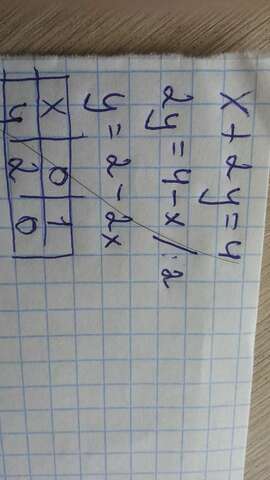 x + 2y = 4
2y = 4 - x / : 2
y = 2 - 2x
x 0 1
y 2 0